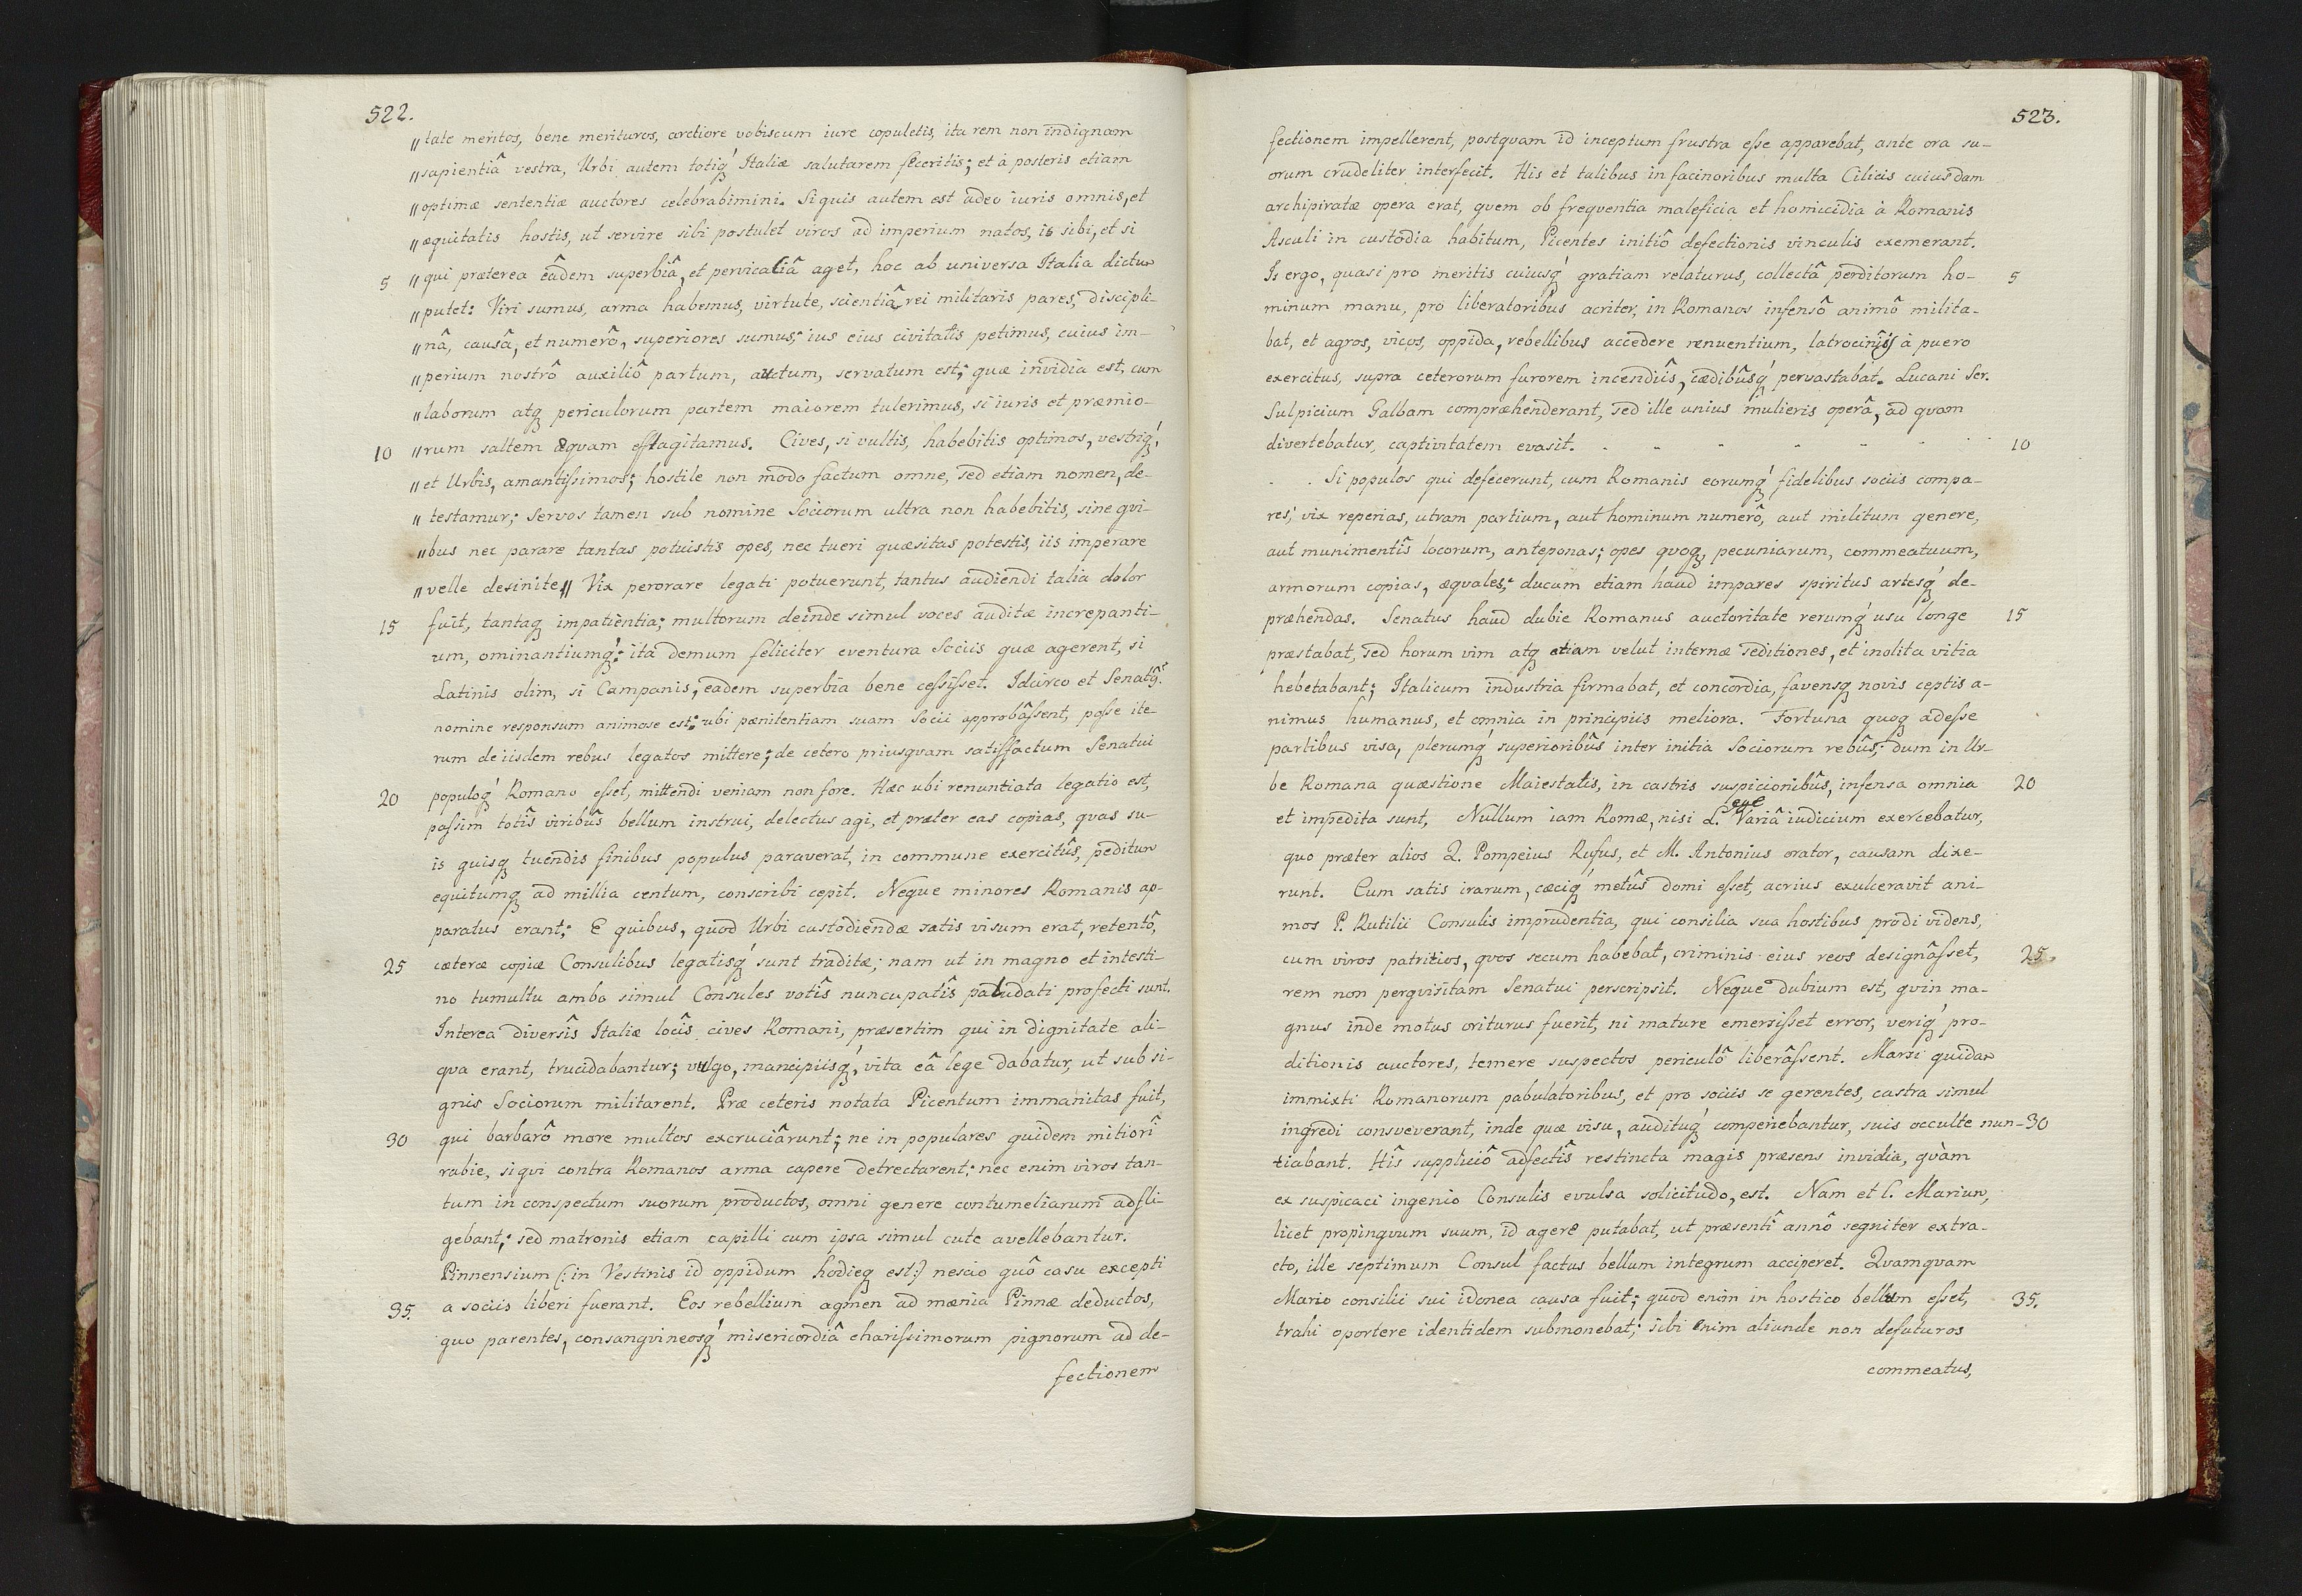 522.
„tate meritos, bene merituros, arctiore vobiscum iure copuletis, ita rem non indignam
„sapientiâ vestra, Urbi autem totiq́ꝫ Italiæ salutarem feceritis; et à posteris etiam
„optimæ sententiæ auctores celebrabimini. Si quis autem est adeo iuris omnis, et
„æquitatis hostis, ut servire sibi postulet viros ad imperium natos, is sibi, et si
5 „qui præterea eâdem superbiâ, et pervicaciâ aget, hoc ab universa Italia dictum
„putet: Viri sumus, arma habemus, virtute, scientiâ rei militaris pares, discipli-
„nâ, causâ, et numerô, superiores sumus; ius eius civitatis petimus, cuius im-
„perium nostrô auxiliô partum, auctum, servatum est; quæ invidia est, cum
„laborum atqꝫ periculorum partem maiorem tulerimus, si iuris et præmio-
10 „rum saltem æquam efflagitamus. Cives, si vultis, habebitis optimos, vestriq́ꝫ
„et Urbis, amantissimos; hostile non modo factum omne, sed etiam nomen, de-
„testamur; servos tamen sub nomine Sociorum ultra non habebitis, sine qui-
„bus nec parare tantas potuistis opes, nec tueri quæsitas potestis, iis imperare
„velle desinite„ Vix perorare legati potuerunt, tantus audiendi talia dolor
15 fuit, tantaqꝫ impatientia; multorum deinde simul voces auditæ increpanti-
um, ominantiumq́ꝫ: ita demum feliciter eventura Sociis quæ agerent, si
Latinis olim, si Campanis, eadem superbia bene cessisset. Idcirco et Senatûs
nomine responsum animose est: ubi pænitentiam suam Socii approbâssent, posse ite-
rum de iisdem rebus legatos mittere; de cetero priusquam satisfactum Senatui
20 populoq́ꝫ Romano esset, mittendi veniam non fore. Hæc ubi renuntiata legatio est,
passim totîs viribûs bellum instrui, delectus agi, et præter eas copias, quas su-
is quisqꝫ tuendis finibus populus paraverat, in commune exercitûs, peditum
equitumqꝫ ad millia centum, conscribi cepit. Neque minores Romanis ap-
paratus erant; E quibus, quod Urbi custodiendæ satis visum erat, retentô,
25 cæteræ copiæ Consulibus legatisq́ꝫ sunt traditæ; nam ut in magno et intesti-
no tumultu ambo simul Consules votîs nuncupatîs paludati profecti sunt.
Interea diversîs Italiæ locîs cives Romani, præsertim qui in dignitate ali-
qua erant, trucidabantur; vulgo, mancipiisq́ꝫ, vita eâ lege dabatur, ut sub si-
gnis Sociorum militarent. Præ ceteris notata Picentum immanitas fuit,
30 qui barbarô more multos excruciârunt; ne in populares quidem mitiori
rabie, si qui contra Romanos arma capere detrectarent; nec enim viros tan-
tum in conspectum suorum productos, omni genere contumeliarum adfli-
gebant; sed matronis etiam capilli cum ipsa simul cute avellebantur.
Pinnensium (: in Vestinis id oppidum hodieqꝫ est:) nescio quô casu excepti
35. a sociis liberi fuerant. Eos rebellium agmen ad mænia Pinnæ deductos,
quo parentes, consanguineosq́ꝫ misericordiâ charissimorum pignorum ad de-
fectionem
523.
fectionem impellerent, postquam id inceptum frustra esse apparebat, ante ora su-
orum crudeliter interfecit. His et talibus in facinoribus multa Cilicis cuiusdam
archipiratæ opera erat, quem ob frequentia maleficia et homicidia à Romanis
Asculi in custodia habitum, Picentes initiô defectionis vinculis exemerant.
Is ergo, quasi pro meritis cuiusq́ꝫ gratiam relaturus, collectâ perditorum ho- 5
minum manu, pro liberatoribus acriter, in Romanos infensô animô milita-
bat, et agros, vicos, oppida, rebellibus accedere renuentium, latrociniis à puero
exercitus, supra ceterorum furorem incendiîs, cædibûsq́ꝫ pervastabat. Lucani Ser.
Sulpicium Galbam compræhenderant, sed ille unius mulieris operâ, ad quam
divertebatur, captivitatem evasit. - - - - - - 10
. . Si populos qui defecerunt, cum Romanis eorumq́ꝫ fidelibus sociis compa-
res, vix reperias, utram partium, aut hominum numerô, aut militum genere,
aut munimentîs locorum, anteponas; opes quoqꝫ, pecuniarum, commeatuum,
armorum copias, æquales; ducum etiam haud impares spiritus artesq́ꝫ de-
præhendas. Senatus haud dubie Romanus auctoritate rerumq́ꝫ usu longe 15
præstabat, sed horum vim atqꝫ etiam velut internæ seditiones, et inolita vitia
hebetabant; Italicum industria firmabat, et concordia, favensqꝫ novis ceptis a-
nimus humanus, et omnia in principiis meliora. Fortuna quoqꝫ adesse
partibus visa, plerumq́ꝫ superioribûs inter initia Sociorum rebûs; dum in Ur-
be Romana quæstione Maiestatis, in castris suspicionibûs, infensa omnia 20
et impedita sunt, Nullum iam Romæ, nisi L. lege Variâ iudicium exercebatur,
quo præter alios Q. Pompeius Rufus, et M. Antonius orator, causam dixe-
runt. Cum satis irarum, cæciq́ꝫ metûs domi esset, acrius exulceravit ani-
mos P. Rutilii Consulis imprudentia, qui consilia sua hostibus prodi videns,
cum viros patritios, quos secum habebat, criminis eius reos designâsset, 25.
rem non perquisitam Senatui perscripsit. Neque dubium est, quin ma-
gnus inde motus oriturus fuerit, ni mature emersisset error, veriq́ꝫ pro-
ditionis auctores, temere suspectos periculô liberâssent. Marsi quidam
immixti Romanorum pabulatoribus, et pro sociis se gerentes, castra simul
ingredi consveverant, inde quæ visu, audituq́ꝫ comperiebantur, suis occulte nun- 30
tiabant. Hîs suppliciô adfectîs restincta magis præsens invidia, quàm
ex suspicaci ingenio Consulis evulsa solicitudo, est. Nam et C. Marium,
licet propinquum suum, id agere putabat, ut præsentî annô segniter extra-
cto, ille septimum Consul factus bellum integrum acciperet. Quamquam
Mario consilii sui idonea causa fuit; quod enim in hostico bellum esset, 35.
trahi oportere identidem submonebat; sibi enim aliunde non defuturos
commeatus,